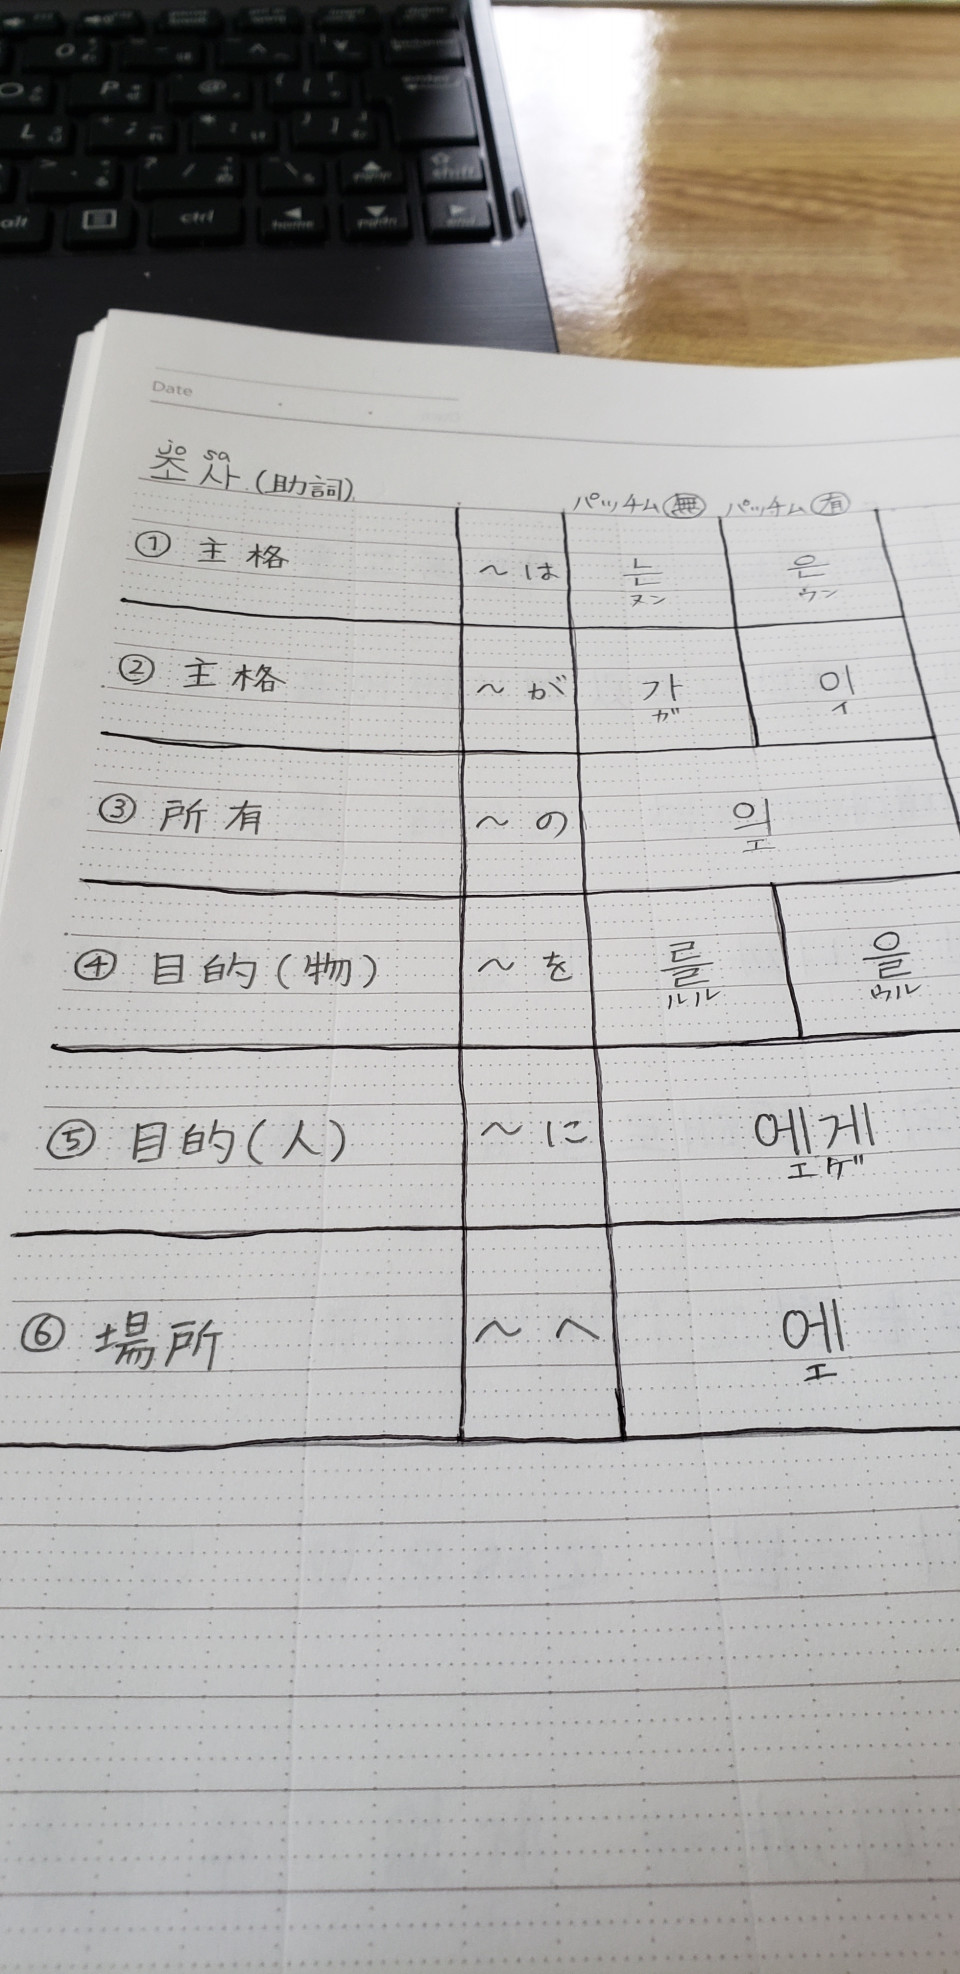 Date
jo sa
조사 (助詞)
パッチム無 パッチム有
① 主格 ～は 는 은
ヌン ウン
② 主格 ～が 가 이
ガ イ
③ 所有 ～の 의
エ
④ 目的(物) ～を 를 을
ルル ウル
⑤ 目的(人) ～に 에게
エゲ
⑥ 場所 ～へ 에
エ
P
L
shift
alt
ctrl
home
end